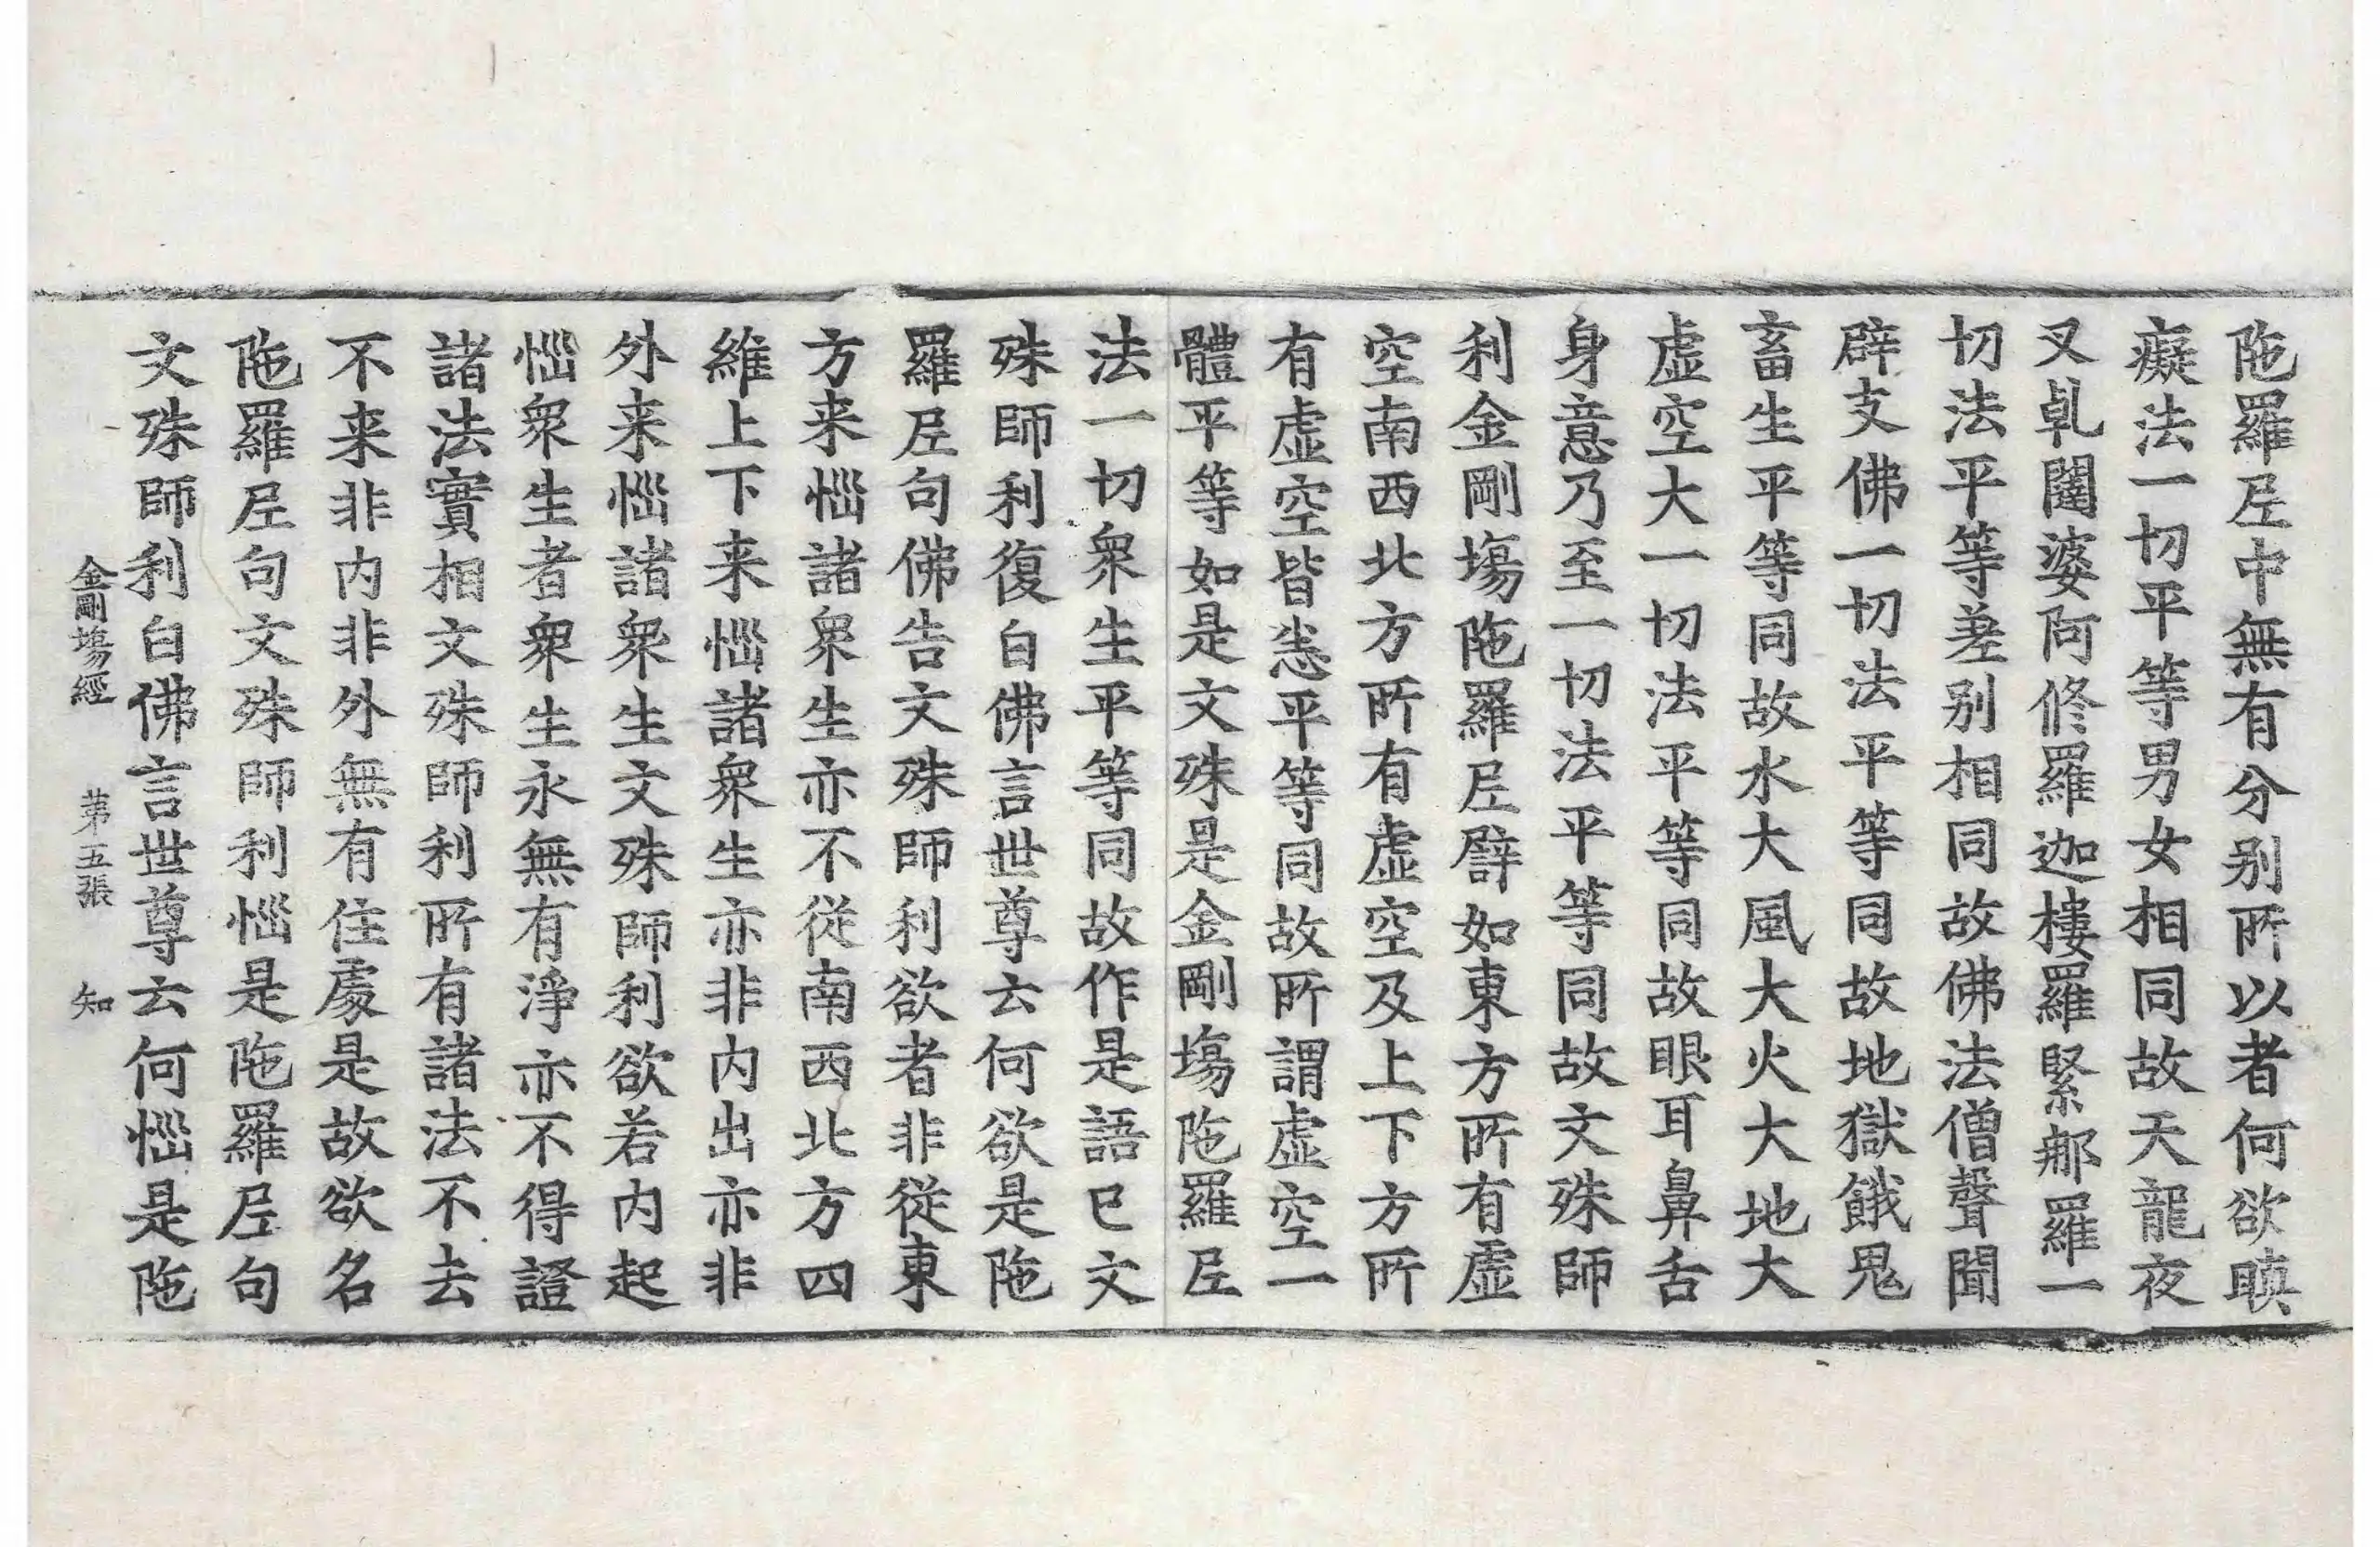 陁羅𡰱中無有分别所以者何欲瞋
癡法一切平等男女相同故天龍夜
叉乹闥婆阿修羅迦樓羅緊那羅一
切法平等差别相同故佛法僧聲聞
辟支佛一切法平等同故地獄餓鬼
畜生平等同故水大風大火大地大
虛空大一切法平等同故眼耳鼻舌
身意乃至一切法平等同故文殊師
利金剛場陁羅𡰱譬如東方所有虛
空南西北方所有虛空及上下方所
有虛空皆悉平等同故所謂虛空一
體平等如是文殊是金剛場陁羅𡰱
法一切衆生平等同故作是語已文
殊師利復白佛言世尊云何欲是陁
羅𡰱句佛告文殊師利欲者非從東
方来惱諸衆生亦不從南西北方四
維上下来惱諸衆生亦非内出亦非
外来惱諸衆生文殊師利欲若内起
惱衆生者衆生永無有淨亦不得證
諸法實相文殊師利所有諸法不去
不来非内非外無有住處是故欲名
陁羅𡰱句文殊師利惱是陁羅𡰱句
文殊師利白佛言世尊云何惱是陁
金剛場經 第五張 知